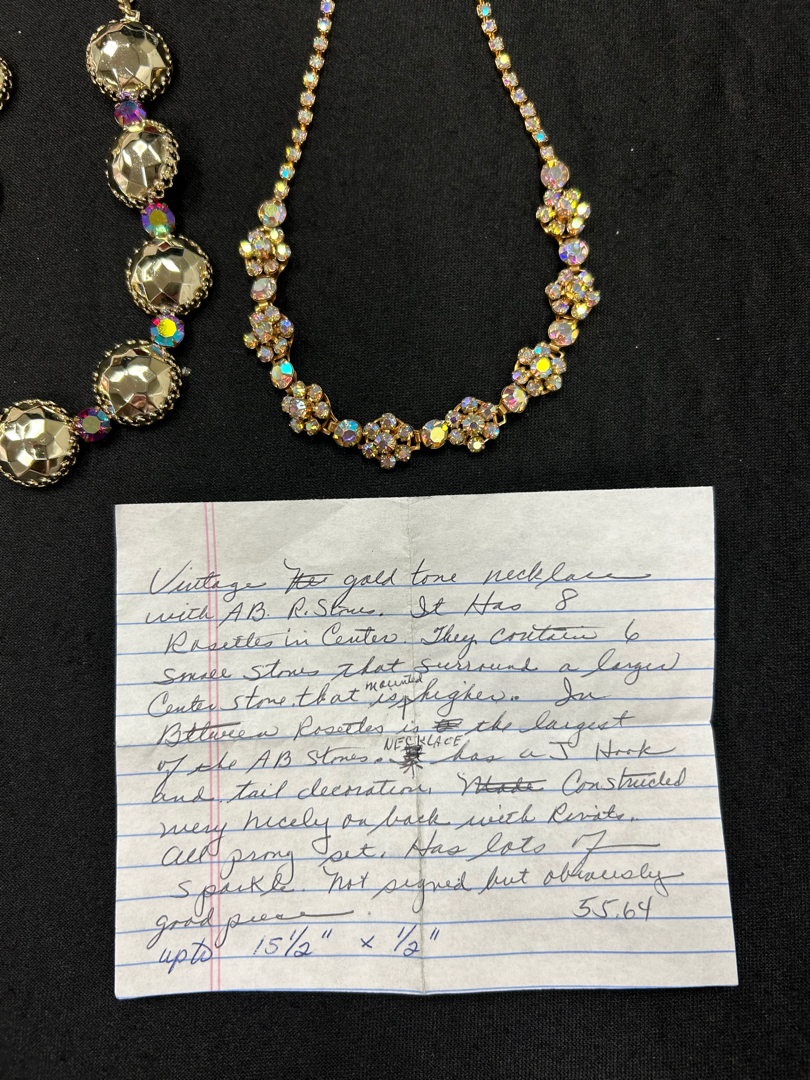 Vintage gold tone necklace
with AB. R. Stones. It Has 8
Rosettes in Center. They contain 6
small stones that surround a larger
Center stone. that is mounted higher. In
Between Rosettes is the largest
of the AB Stones. NECKLACE has a J Hook
and tail decoration. Constructed
very nicely on back with Rivots.
All prong set. Has lots of
sparkle. Not signed but obviously
good piece.
55.64
upto 15 1/2" x 1/2"